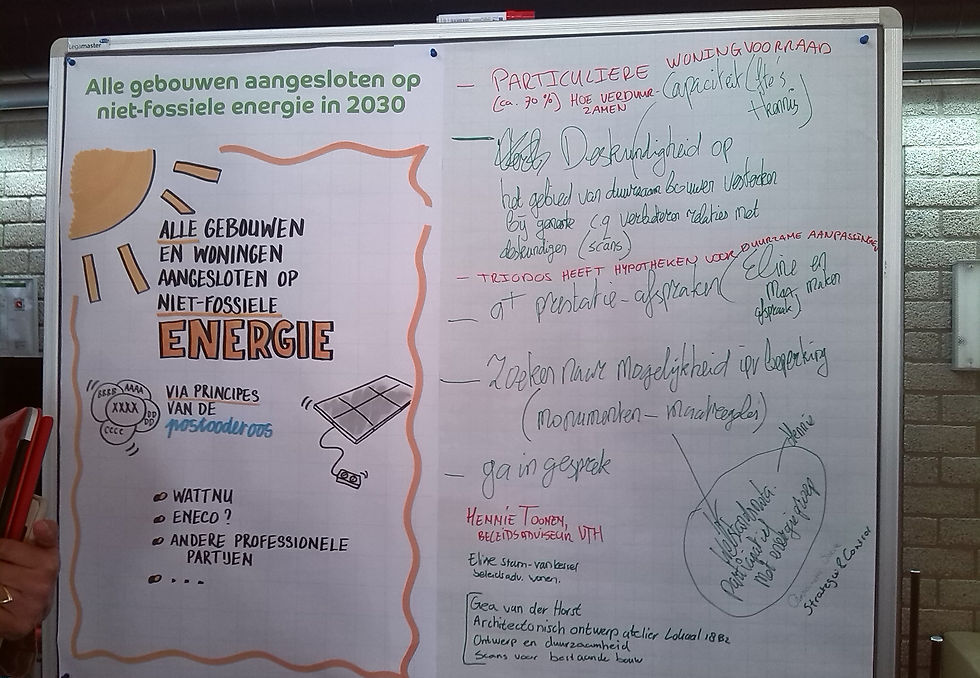 Legamaster
Alle gebouwen aangesloten op
niet-fossiele energie in 2030
ALLE GEBOUWEN
EN WONINGEN
AANGESLOTEN OP
NIET-FOSSIELE
ENERGIE
BBBB AAAA
XXXX
DD
DD
CCCC
VIA PRINCIPES
VAN DE
postcoderoos
WATTNU
ENECO?
ANDERE PROFESSIONELE
PARTIJEN
- PARTICULIERE WONINGVOORRAAD
(ca. 70%) HOE VERDUUR-
ZAMEN
Capaciteit (fte's
Hennie)
Deskundigheid op
het gebied van duurzaam bouwen versterken
bij gemeente c.q verbeteren relaties met
deskundigen (scans)
- TRIODOS HEEFT HYPOTHEKEN VOOR DUURZAME AANPASSINGEN
- of prestatie-afspraken (Eline en
maken
afspraak)
- Zoeken naar mogelijkheid ipv beperking
(monumenten - maatregelen)
- ga in gesprek
Hennie
Participatie
met energiegroep
Strategie & Control
HENNIE TOONEN,
BELEIDSADVISEUR VTH
Eline stam-van
beleidsadv. wonen.
Gea van der Horst
Architectonisch ontwerp atelier Lokaal 18B2
Ontwerp en duurzaamheid
Scans voor bestaande bouw